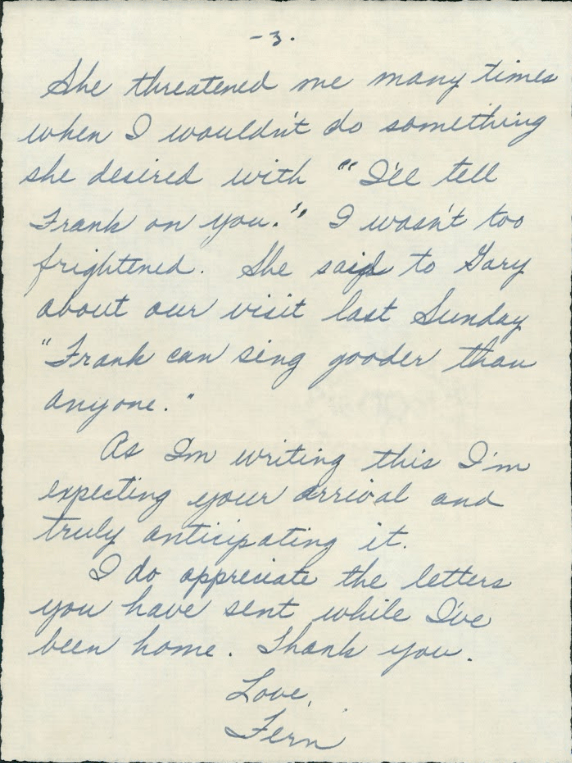 -3.
She threatened me many times
when I wouldn't do something
she desired with "I'll tell
Frank on you.", I wasn't too
frightened. She said to Gary
about our visit last Sunday
"Frank can sing gooder than
anyone."
As I'm writing this I'm
expecting your arrival and
truly anticipating it.
I do appreciate the letters
you have sent while I've
been home. Thank you.
Love,
Fern